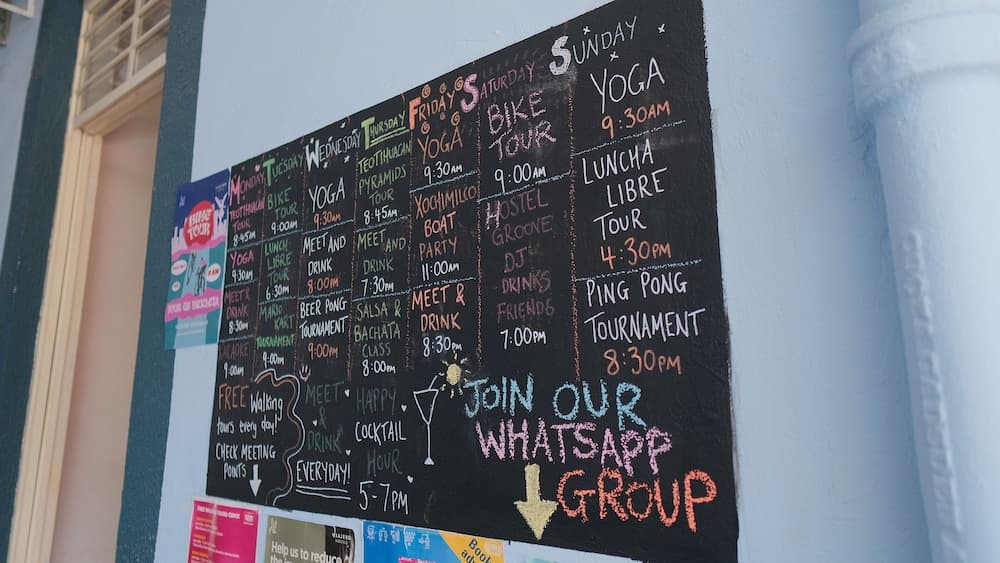 MONDAY
TEOTIHUACAN
TOUR
8:45AM
YOGA
9:30AM
MEET &
DRINK
8:30PM
KARAOKE
9:00PM
TUESDAY
BIKE
TOUR
9:00AM
LUNCH
LIBRE
TOUR
6:30PM
MARIO
KART
TOURNAMENT
9:00PM
WEDNESDAY
YOGA
9:30AM
MEET AND
DRINK
8:00PM
BEER PONG
TOURNAMENT
9:00PM
THURSDAY
TEOTIHUACAN
PYRAMIDS
TOUR
8:45AM
MEET AND
DRINK
7:30PM
SALSA &
BACHATA
CLASS
8:00PM
FRIDAY
YOGA
9:30AM
XOCHIMILCO
BOAT
PARTY
11:00AM
MEET &
DRINK
8:30PM
SATURDAY
BIKE
TOUR
9:00AM
HOSTEL
GROOVE
DJ
DRINKS
FRIENDS
7:00PM
SUNDAY
YOGA
9:30AM
LUNCHA
LIBRE
TOUR
4:30PM
PING PONG
TOURNAMENT
8:30PM
FREE Walking
tours every day!
CHECK MEETING
POINTS
MEET
&
DRINK
EVERYDAY!
HAPPY
COCKTAIL
HOUR
5-7PM
JOIN OUR
WHATSAPP
GROUP
BIKE
TOUR
Help us to reduce
Book